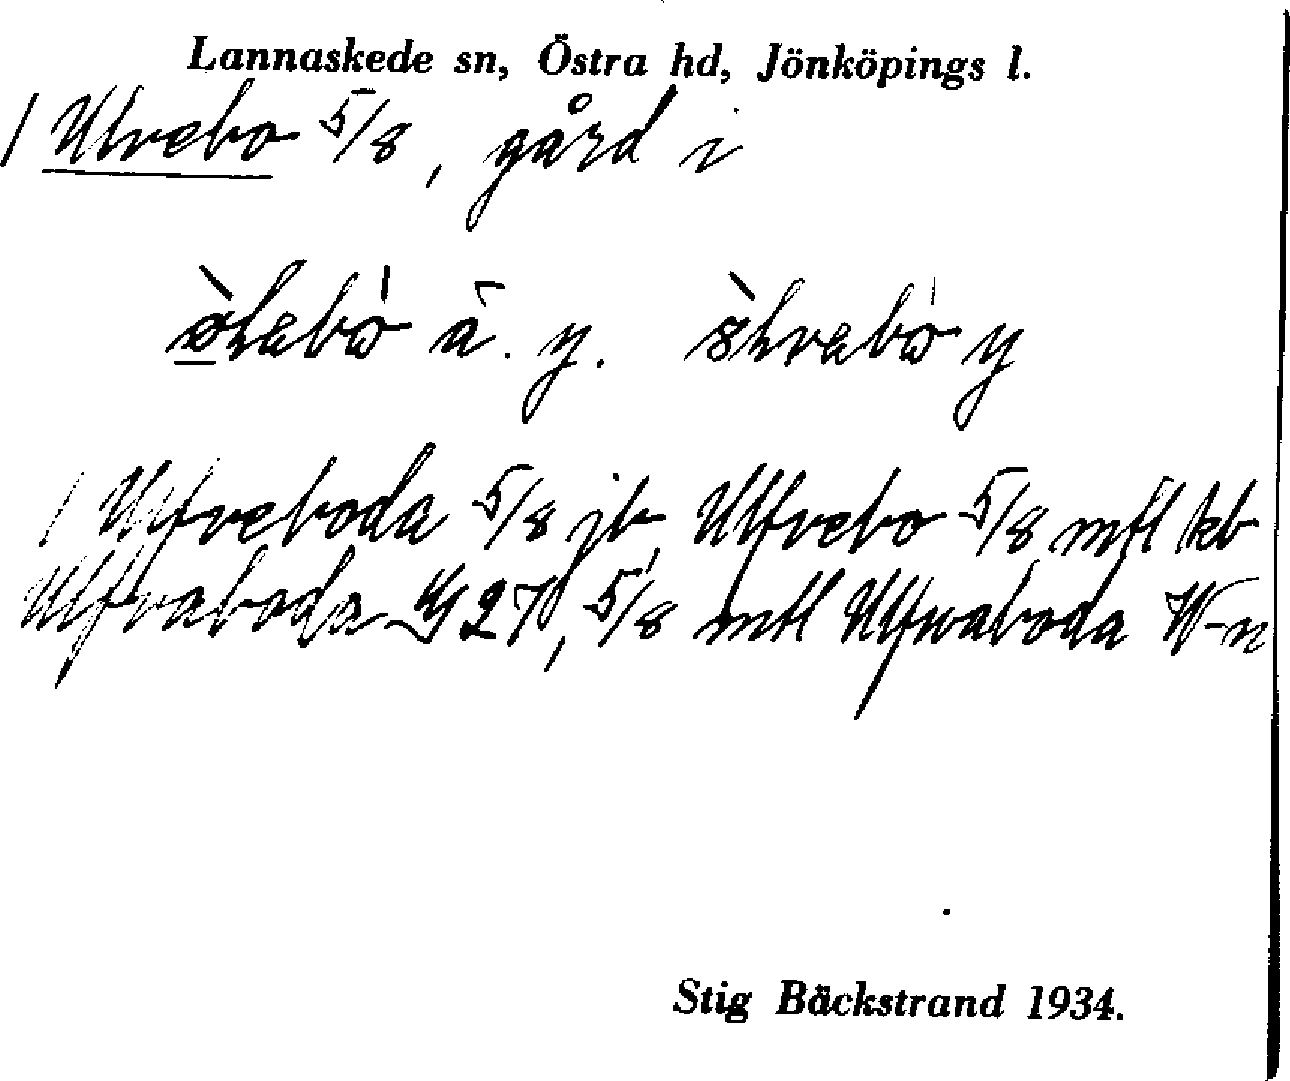 Lannaskede sn, Östra hd, Jönköpings l.
1 Ulvebo 5/8, gård i
å. y. y
1 Ulfveboda 5/8 jb, Ulfvebo 5/8 mtl kb
Ulfvaboda 27, 5/8 mtl Ulfwaboda W-n
Stig Bäckstrand 1934.